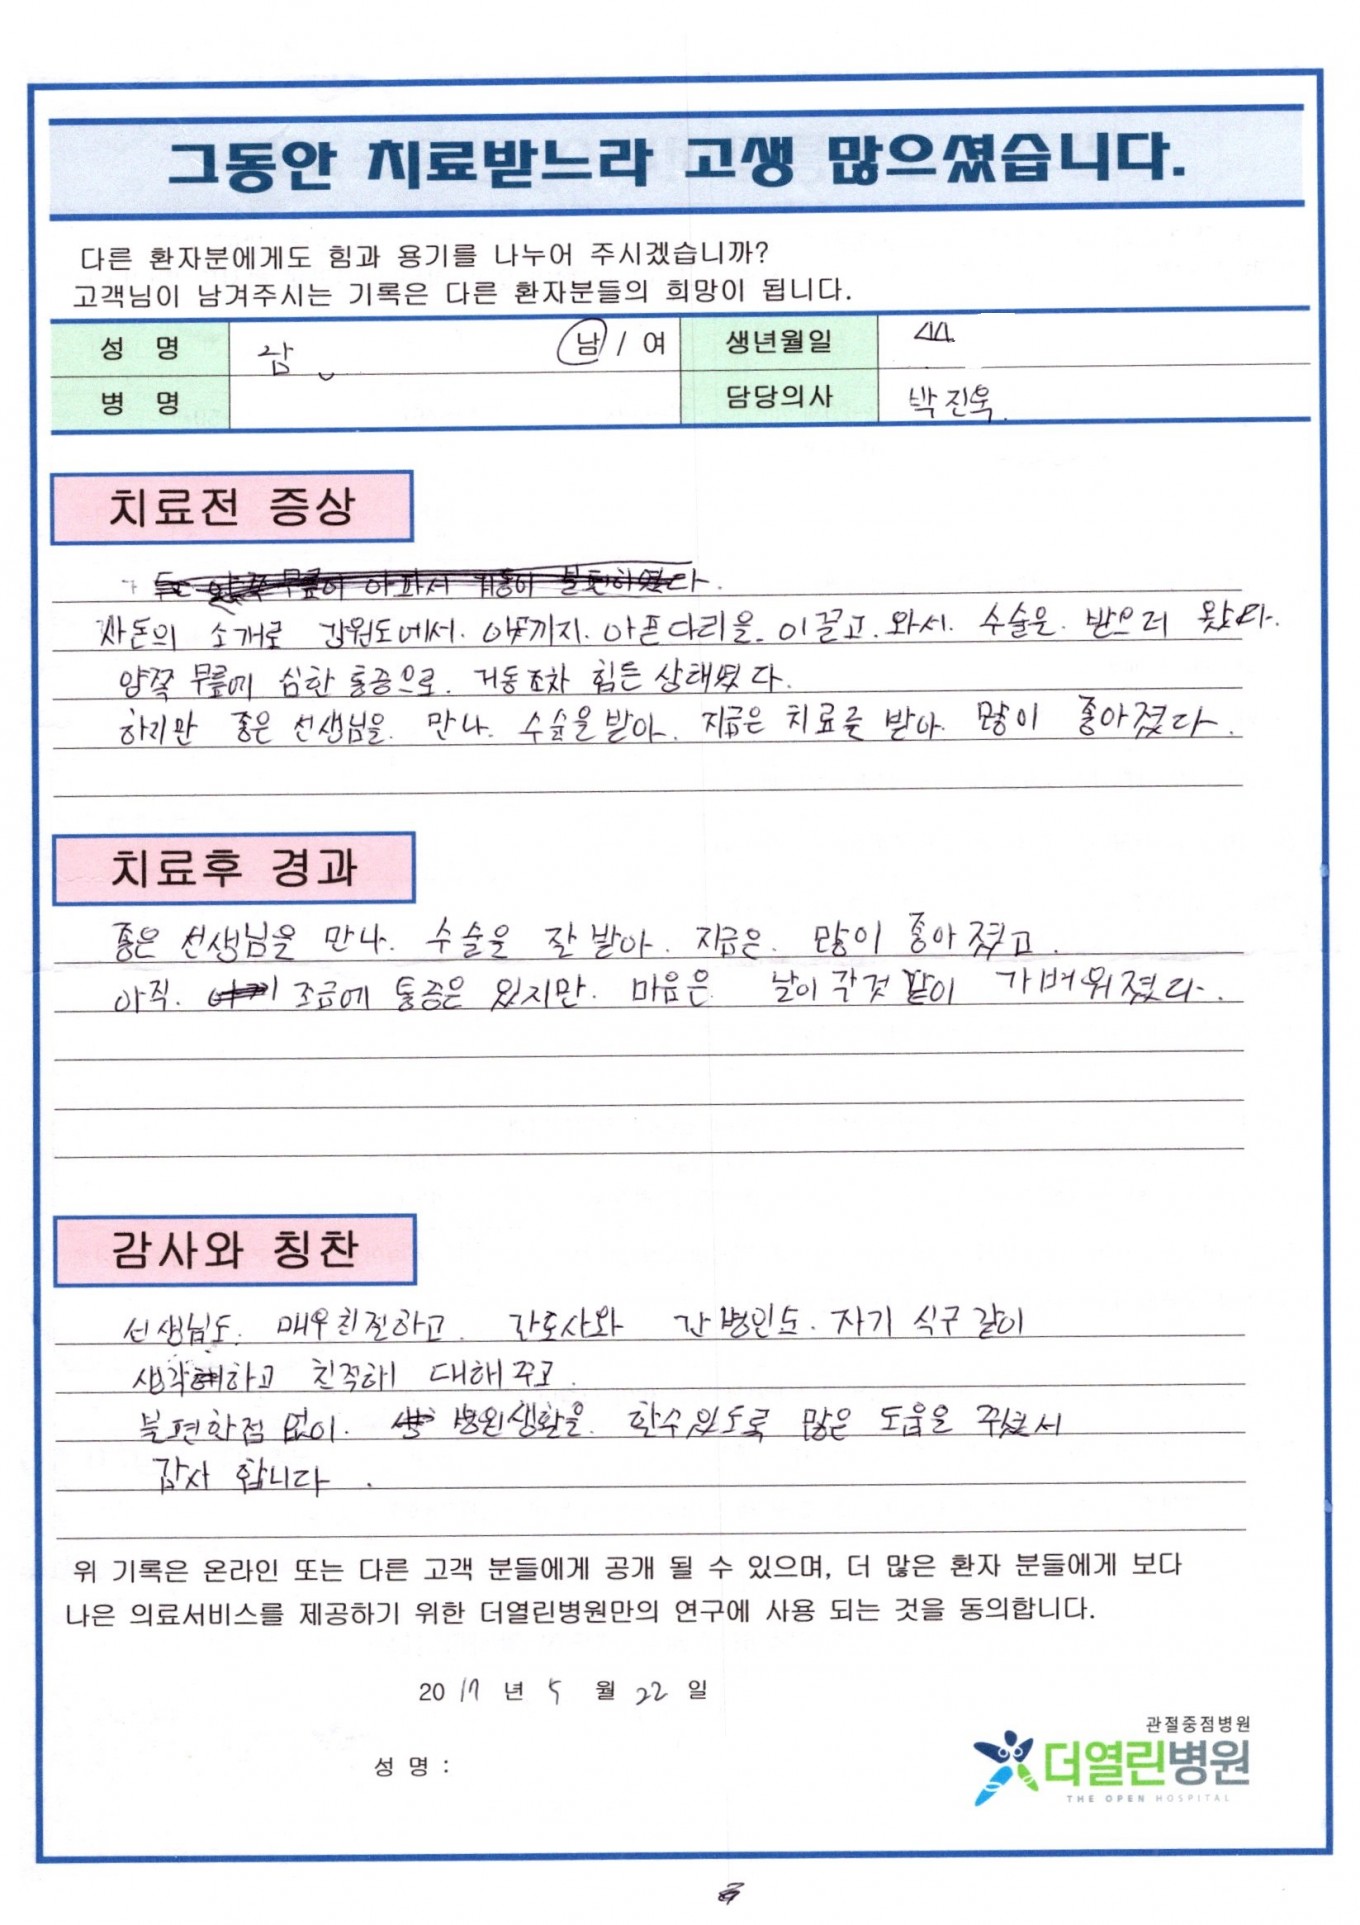 그동안 치료받느라 고생 많으셨습니다.
다른 환자분에게도 힘과 용기를 나누어 주시겠습니까?
고객님이 남겨주시는 기록은 다른 환자분들의 희망이 됩니다.
성 명 남 / 여 생년월일 44.
병 명 담당의사 박진욱.
치료전 증상
양쪽 무릎이 아파서 거동이 불편하였다.
사돈의 소개로 강원도에서. 이곳까지. 아픈다리을. 이끌고. 와서. 수술은. 받으러 왔다.
양쪽 무릎에 심한 통증으로. 거동조차 힘든 상태였다.
하지만 좋은 선생님을. 만나. 수술을받아. 지금은 치료를 받아. 많이 좋아졌다.
치료후 경과
좋은 선생님을 만나. 수술을 잘 받아. 지금은. 많이 좋아졌고.
아직. 조금에 통증은 있지만. 마음은 날이 각것 같이 가벼워졌다.
감사와 칭찬
선생님도. 매우친절하고. 간호사와 간병인도. 자기 식구같이
생각하고 친절하게 대해주고.
불편한점 없이. 병원생활을. 할수있도록 많은 도움을 주셔서
감사 합니다.
위 기록은 온라인 또는 다른 고객 분들에게 공개 될 수 있으며, 더 많은 환자 분들에게 보다
나은 의료서비스를 제공하기 위한 더열린병원만의 연구에 사용 되는 것을 동의합니다.
2017 년 5 월 22 일
성 명 :
관절중점병원
더열린병원
THE OPEN HOSPITAL